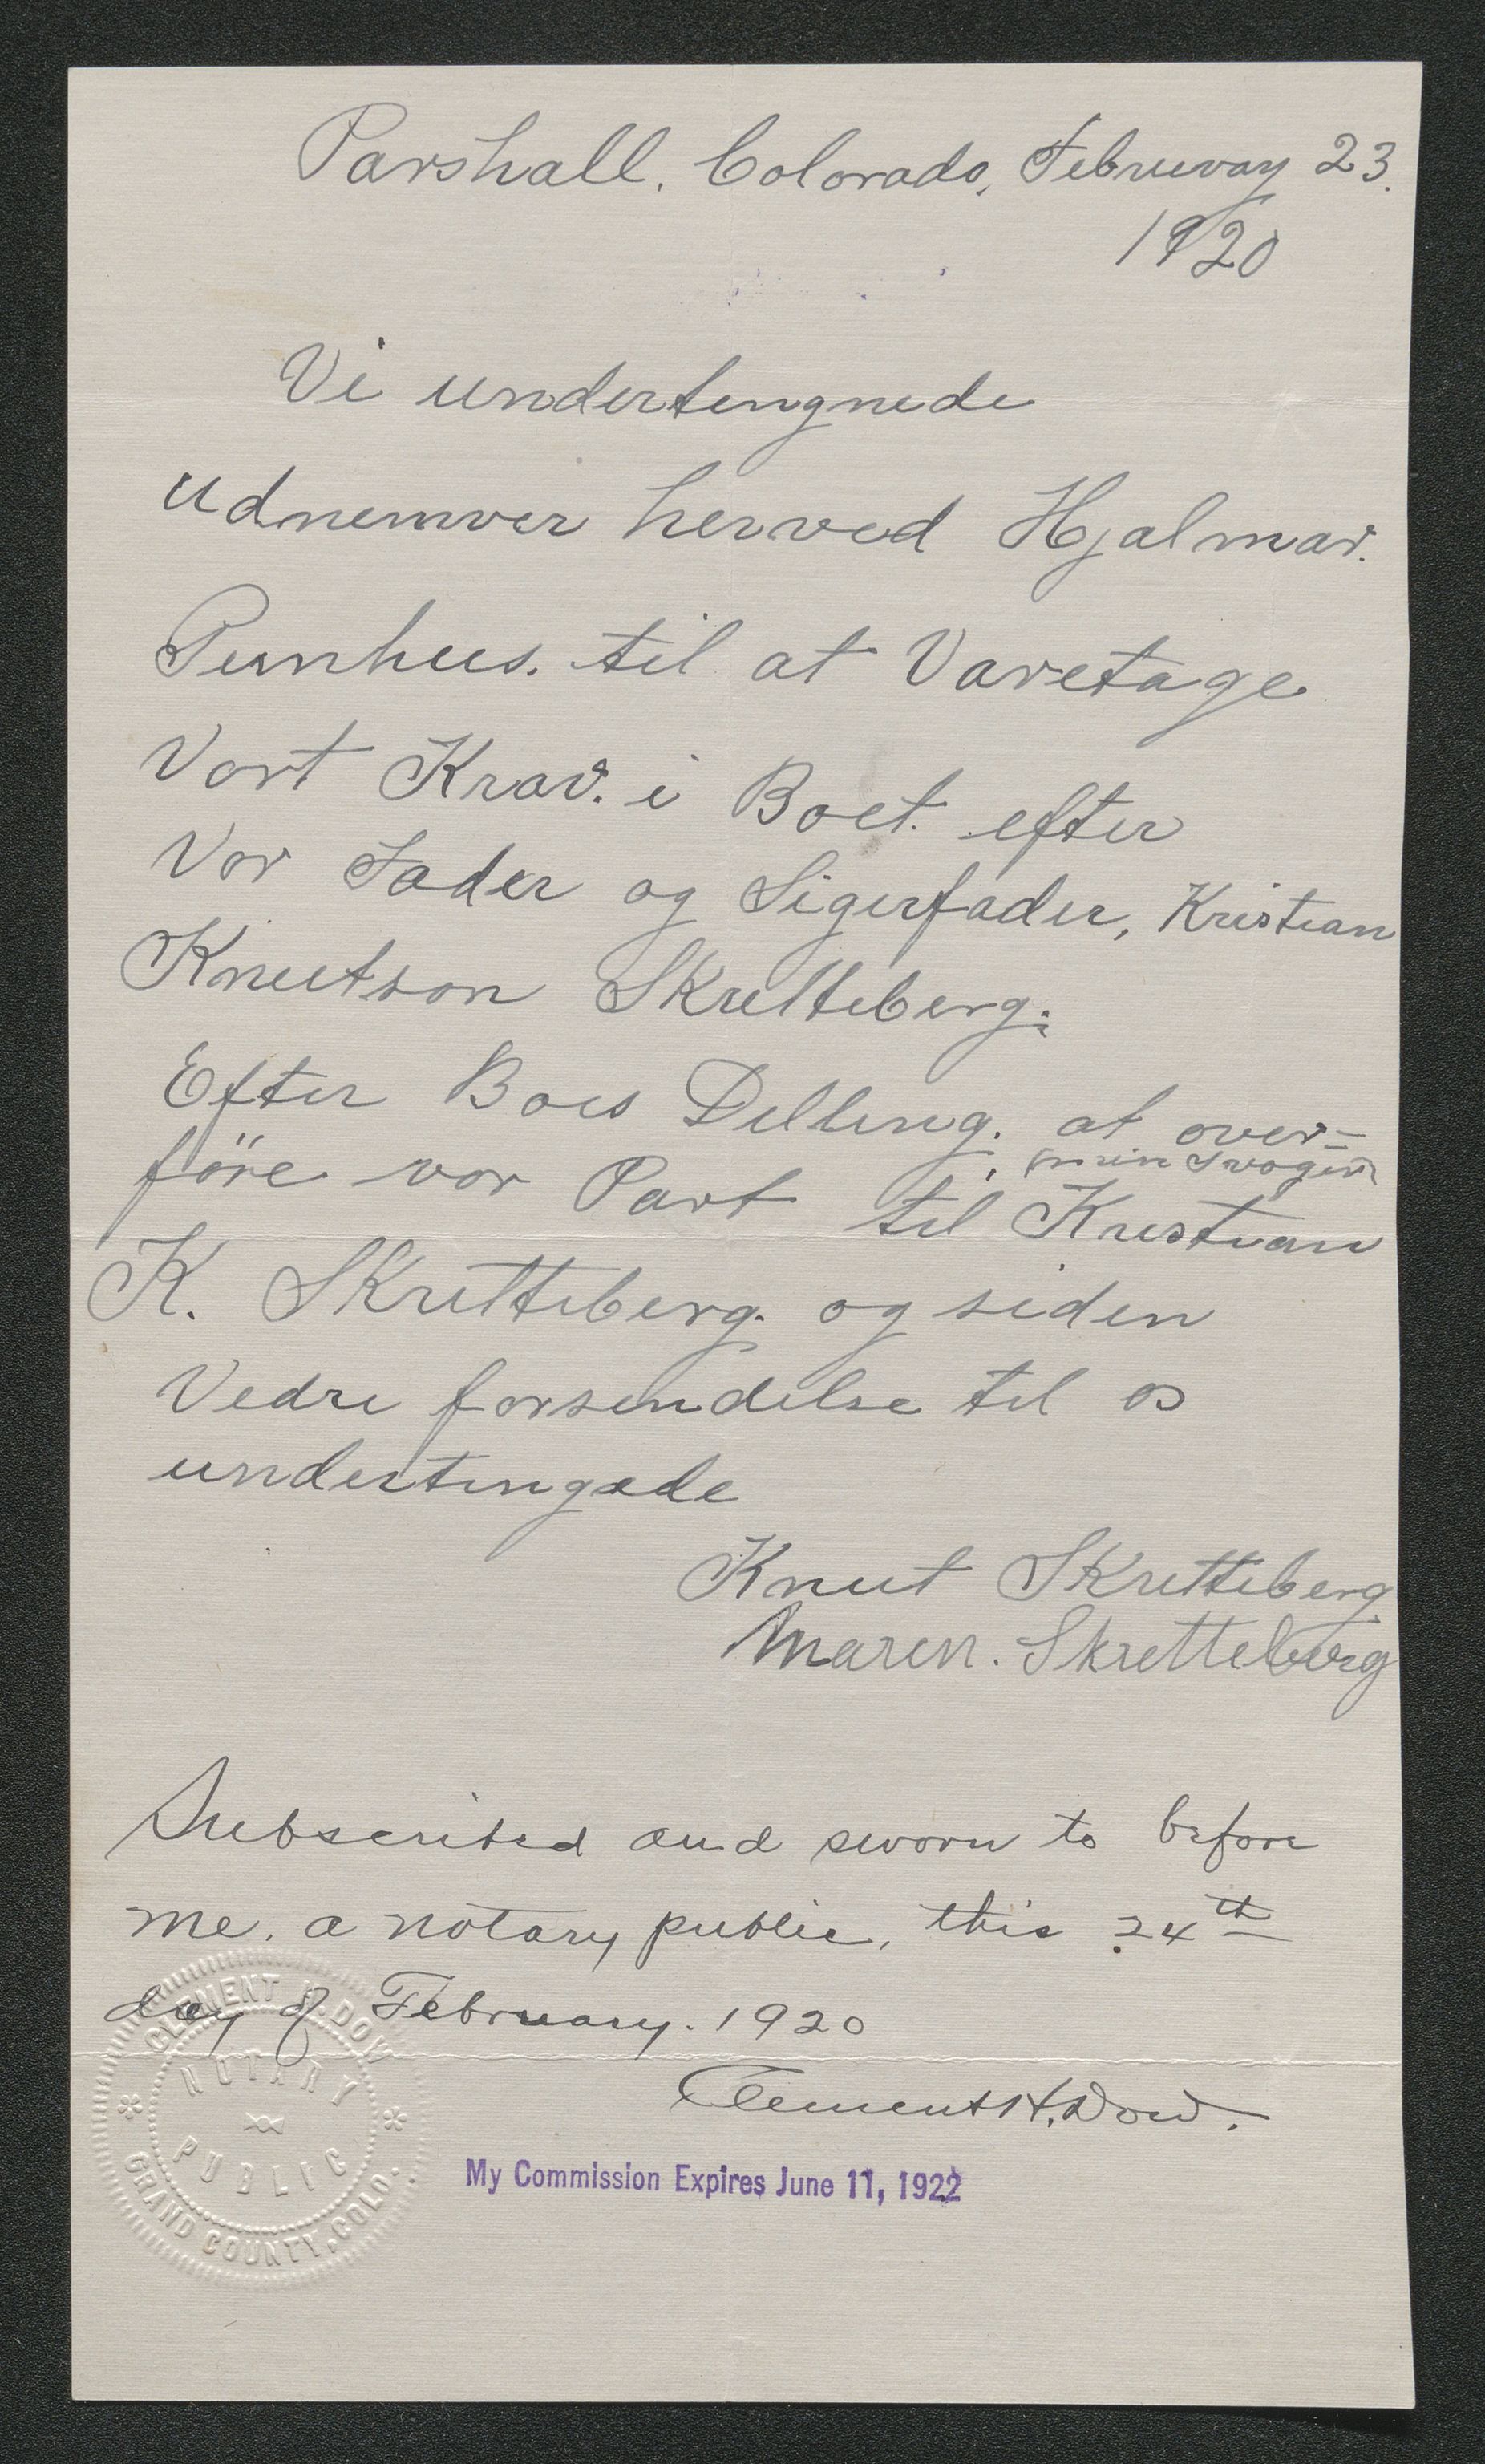 Parshall, Colorado, Februray 23.
1920
Vi undertengnede
udnemver herved Hjalmar.
Punhus. til at Varetage
Vort Krav. i Boet. efter
Vor Fader og Sigerfader, Kristian
Knutson Skretteberg.
Efter Boes Delling. at over-
(min Svoger)
före vor Part til Kristian
K. Skretteberg. og siden
Vedre forsendelse til os
undertingede
Knut Skretteberg
Maren. Skretteberg
Subscribed and sworn to before
me, a notary public, this 24th
day of February. 1920
Clement H. Dow.
My Commission Expires June 11, 1922
CLEMENT H. DOW
NOTARY
PUBLIC
GRAND COUNTY, COLO.